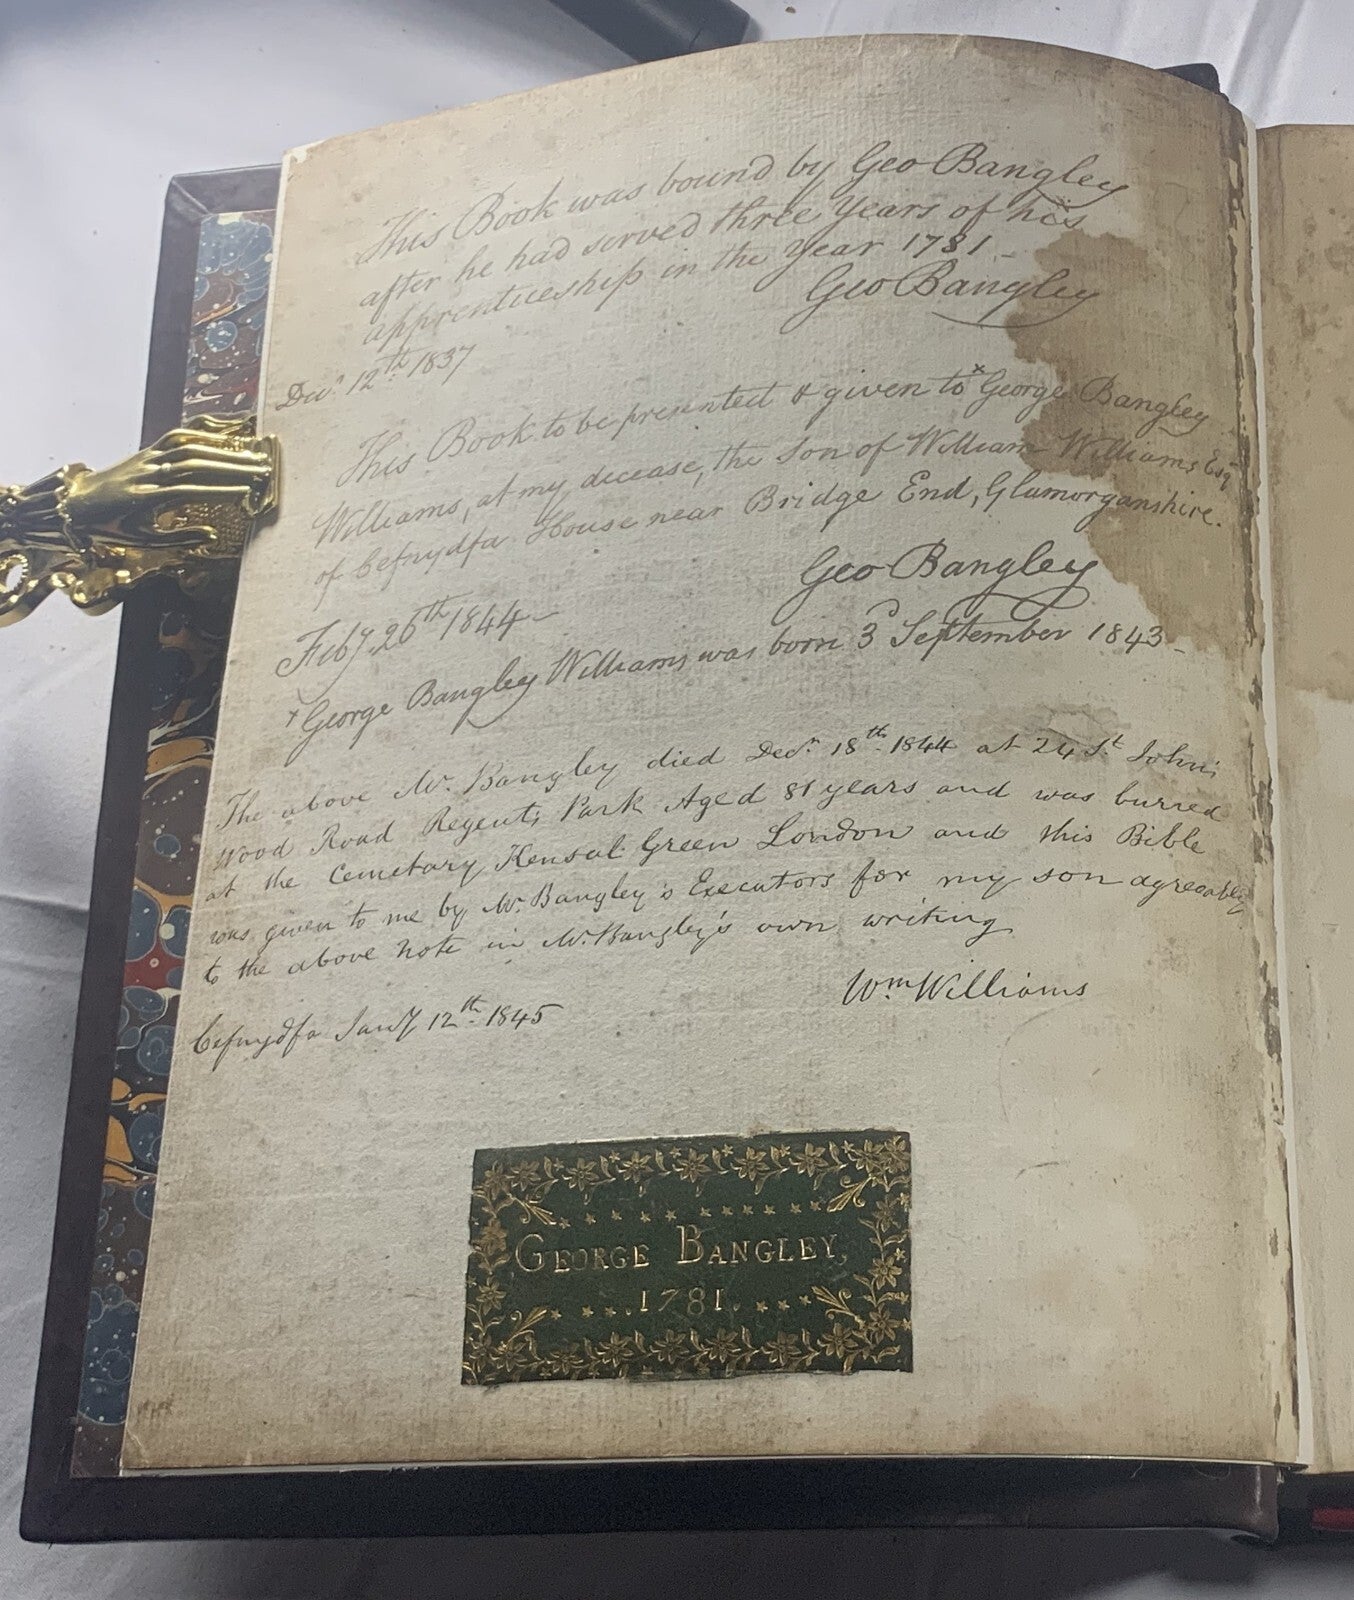 This Book was bound by Geo Bangley
after he had served three Years of his
apprenticeship in the Year 1781 -
Geo Bangley
Decr. 12th. 1837
This Book to be presented & given to x George Bangley
Williams, at my decease, the Son of William Williams Esqr
of Cefnydfa House near Bridge End, Glamorganshire.
Geo Bangley
Feby. 26th 1844 -
x George Bangley Williams was born 3d September 1843 -
The above Mr. Bangley died Decr. 18th. 1844 at 24 St. Johns
Wood Road Regents Park Aged 81 years and was burred
at the Cemetary Kensal Green London and this Bible
was given to me by Mr. Bangley's Executors for my son agreeably
to the above note in Mr. Bangley's own writing
Wm Williams
Cefnydfa Jany 12th. 1845
GEORGE BANGLEY,
1781.